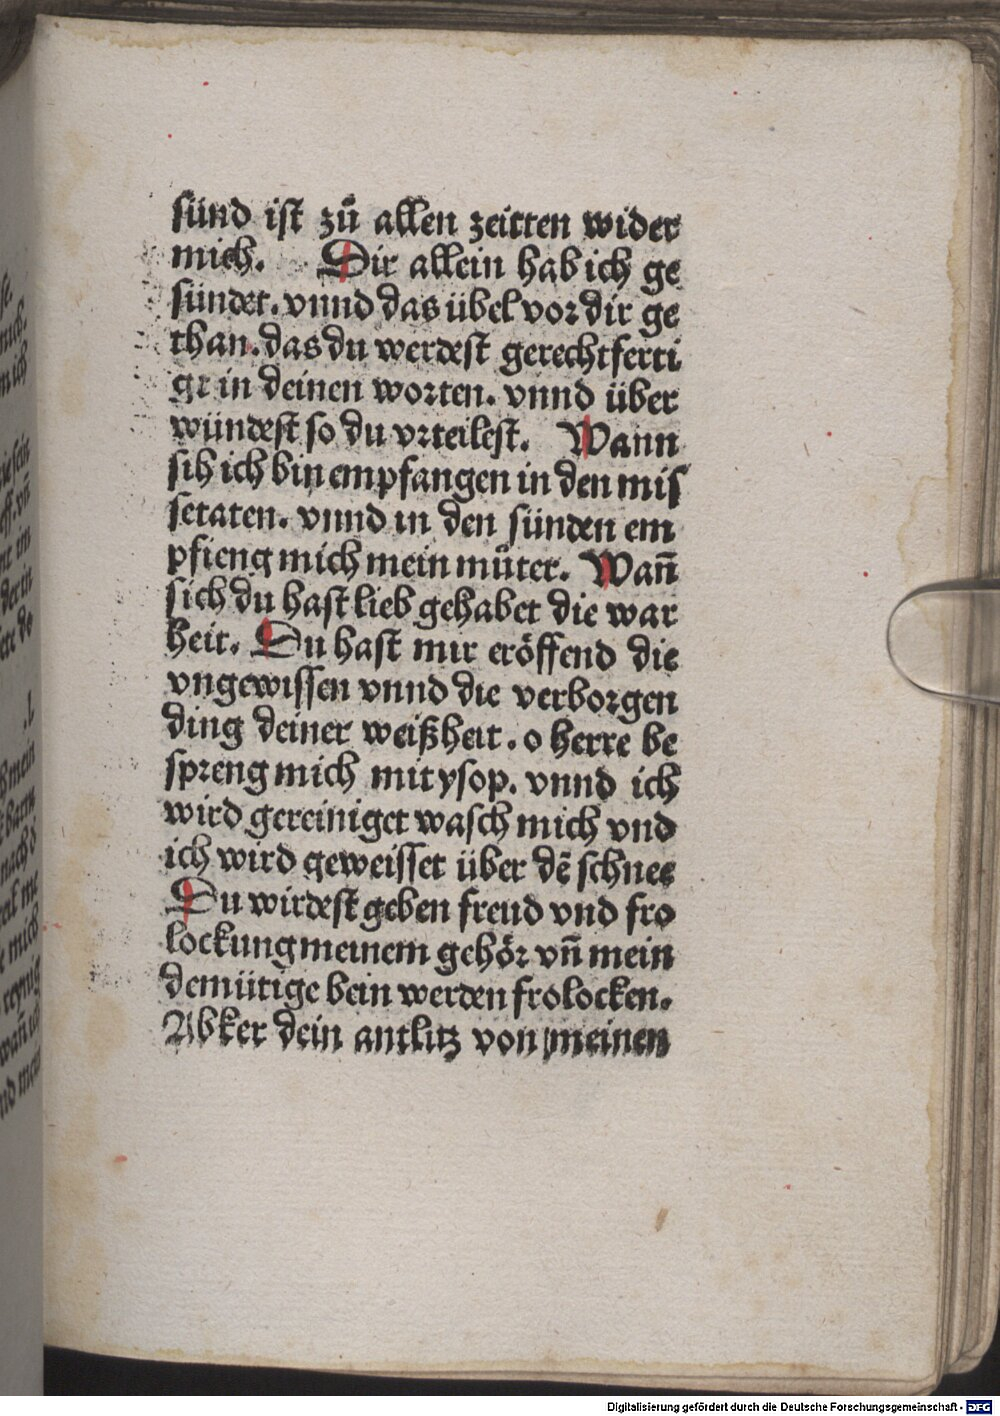 sünd ist zů allen zeitten wider
mich. Dir allein hab ich ge
sündet. vnnd das übel vor dir ge
than. das du werdest gerechtferti
get in deinen worten. vnnd über
wündest so du vrteilest. Wann
sih ich bin empfangen in den mis
setaten. vnnd in den sünden em
pfieng mich mein můter. Wañ
sich du hast lieb gehabet die war
heit. Du hast mir eröffend die
vngewissen vnnd die verborgen
ding deiner weißheit. o herre be
spreng mich mit ysop. vnnd ich
wird gereiniget wasch mich vnd
ich wird geweisset über dē schnee
Du wirdest geben freud vnd fro
lockung meinem gehör vñ mein
demütige bein werden frolocken.
Abker dein antlitz von meinen
Digitalisierung gefördert durch die Deutsche Forschungsgemeinschaft - DFG